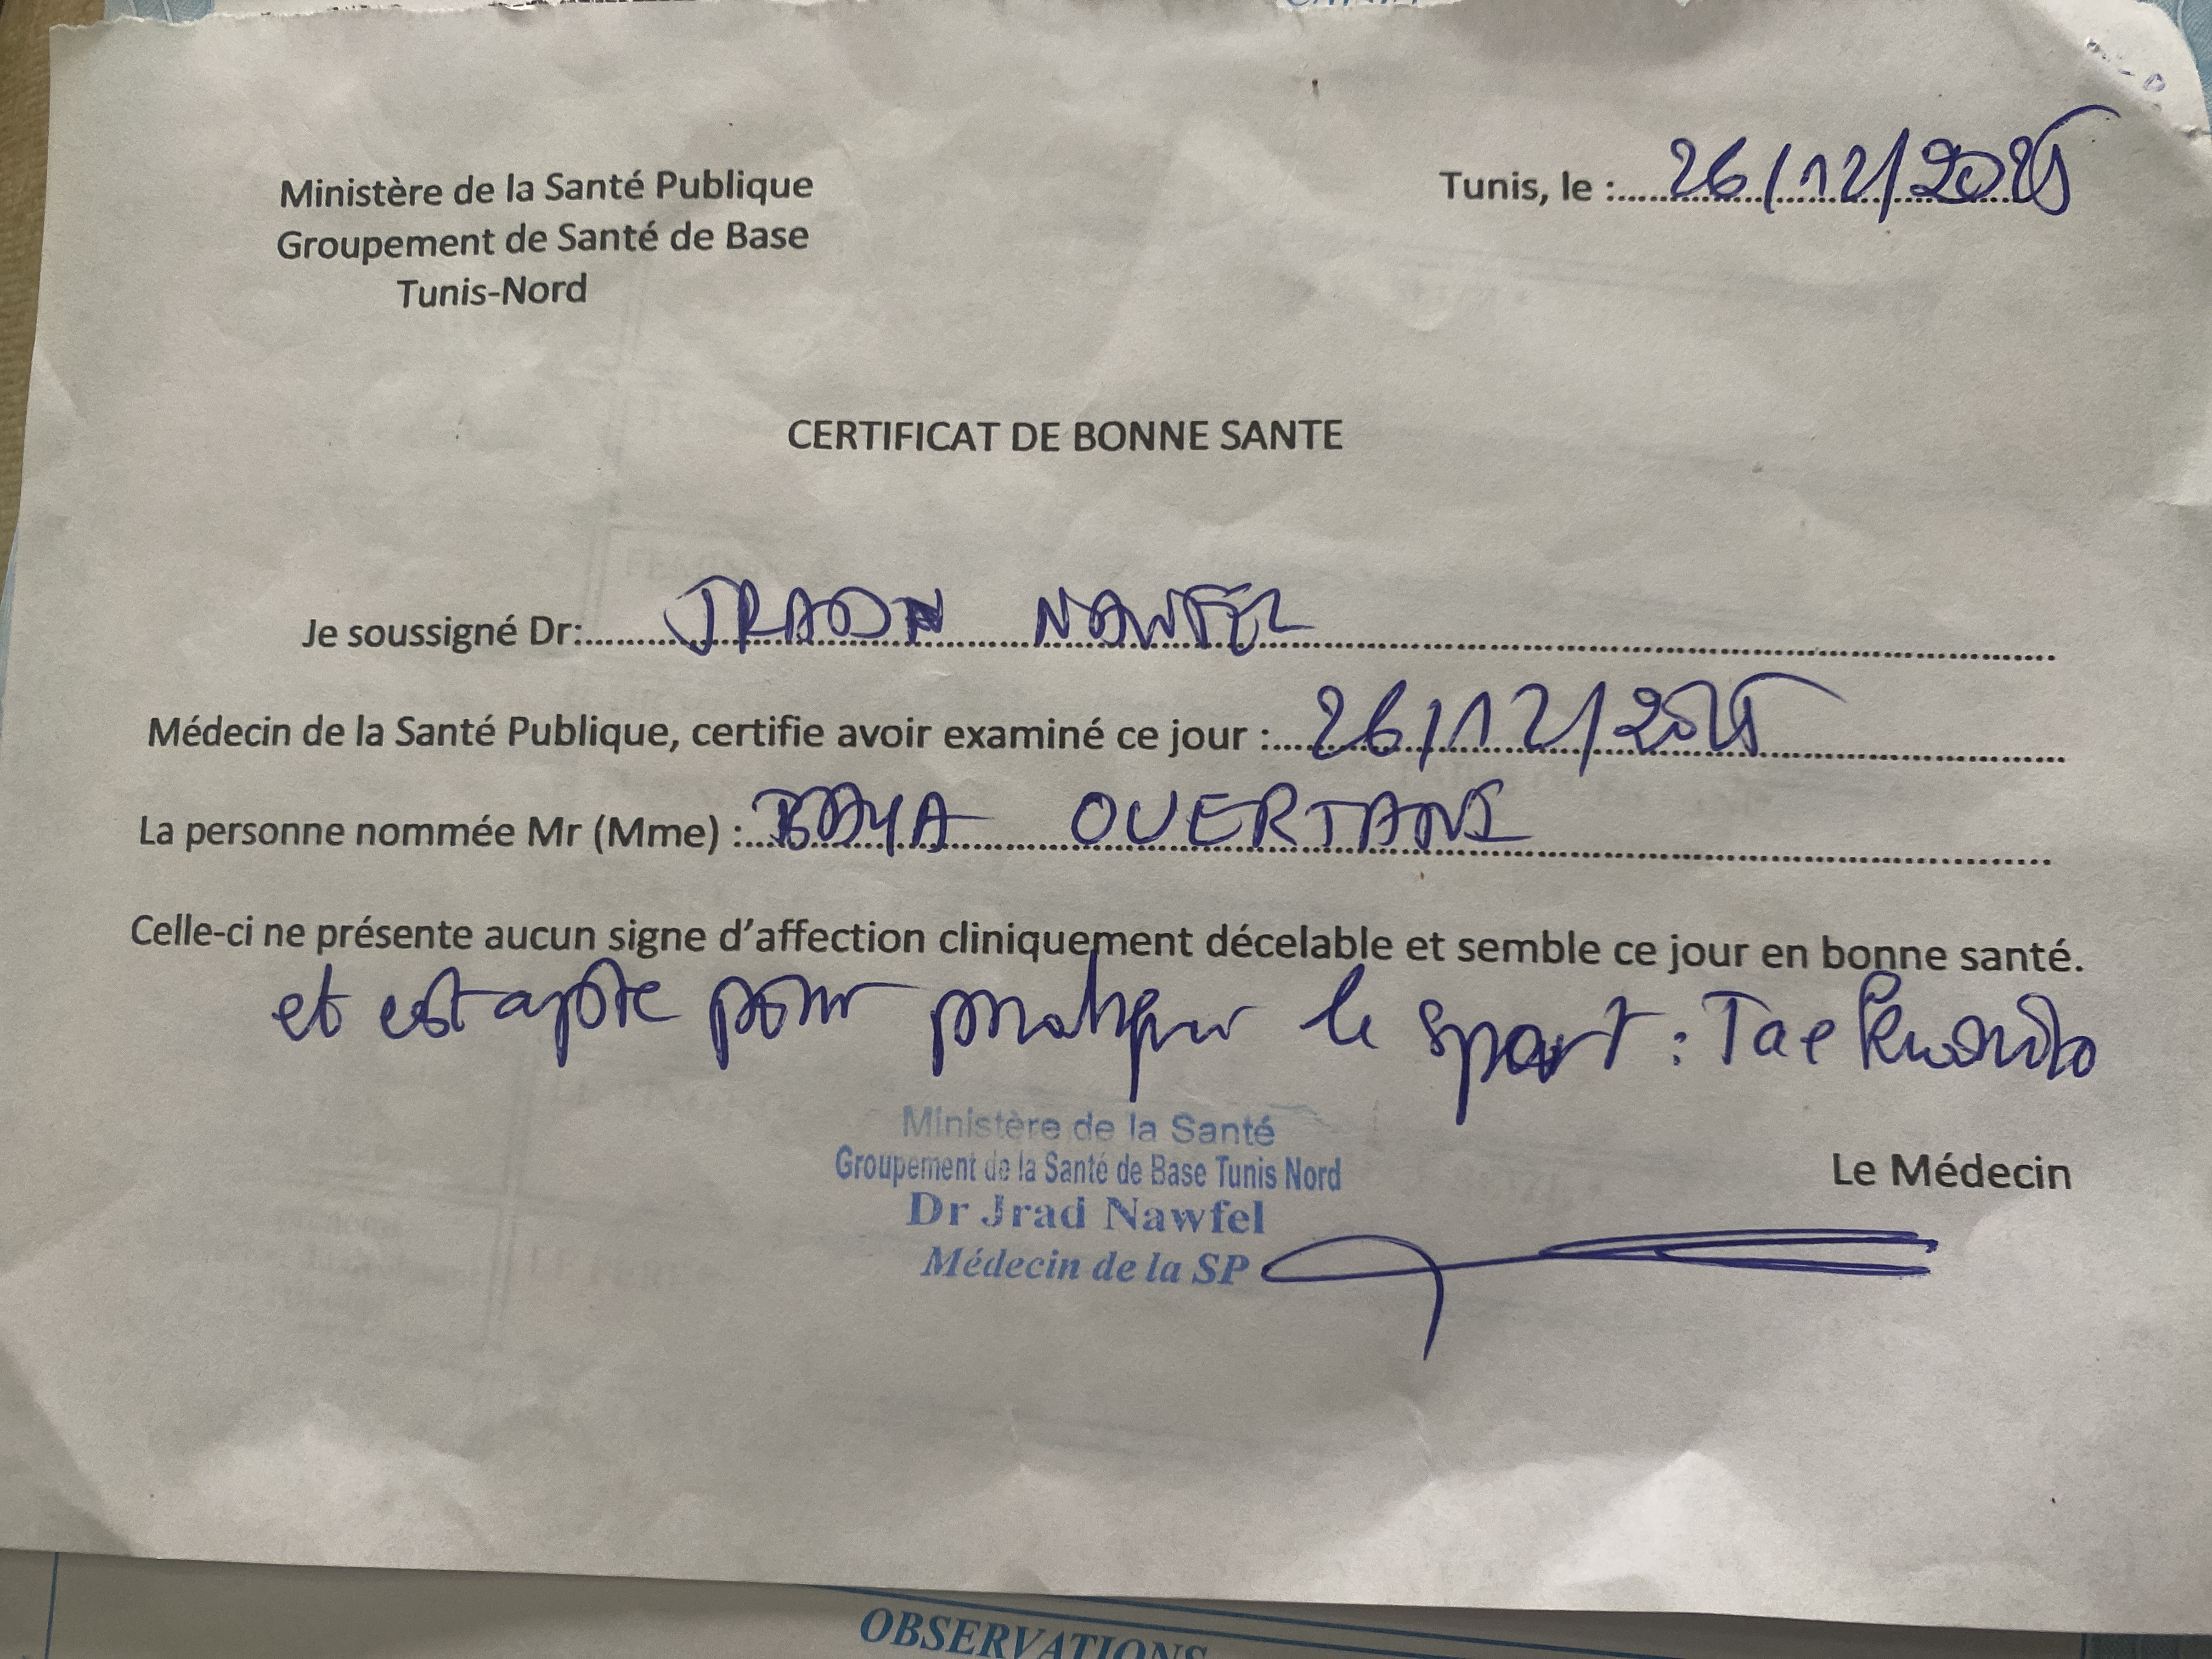 Ministère de la Santé Publique
Groupement de Santé de Base
Tunis-Nord
Tunis, le : 26/12/2025
CERTIFICAT DE BONNE SANTE
Je soussigné Dr: JRAD NAWFEL
Médecin de la Santé Publique, certifie avoir examiné ce jour : 26/12/2025
La personne nommée Mr (Mme) : BAYA OUERTANI
Celle-ci ne présente aucun signe d'affection cliniquement décelable et semble ce jour en bonne santé.
et est apte pour pratiquer le sport : Taekwondo
Ministère de la Santé
Groupement de la Santé de Base Tunis Nord
Dr Jrad Nawfel
Médecin de la SP
Le Médecin
OBSERVATIONS